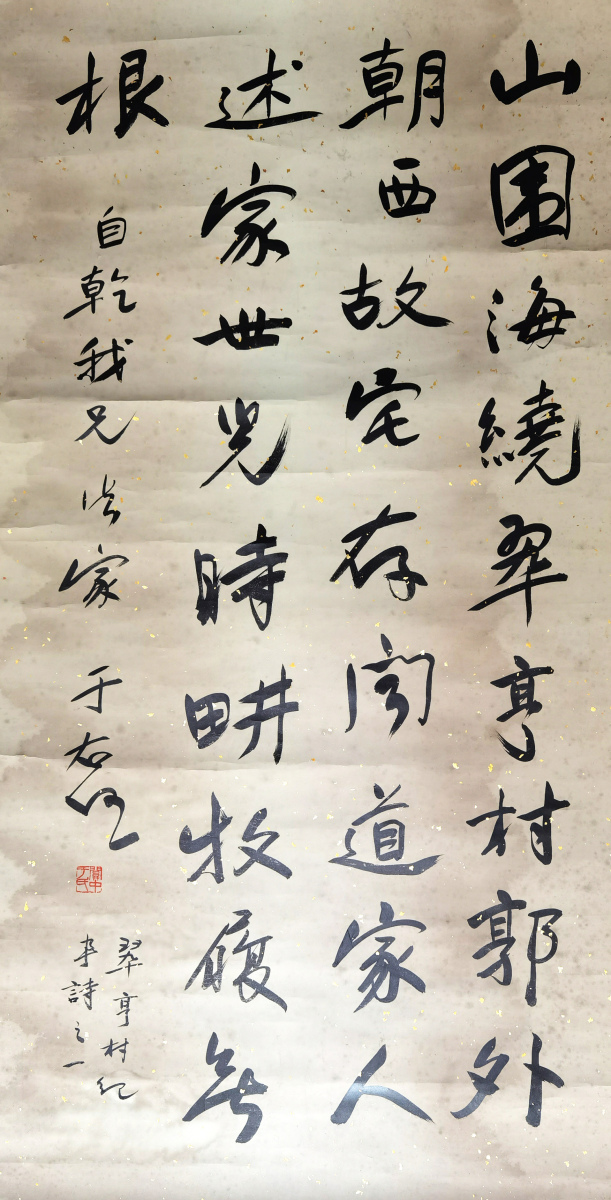 山圍海繞翠亨村郭外
朝西故宅存聞道家人
述家世兒時畊牧履無
根
自乾我兄法家
于右任
關中于氏
翠亨村紀
事詩之一